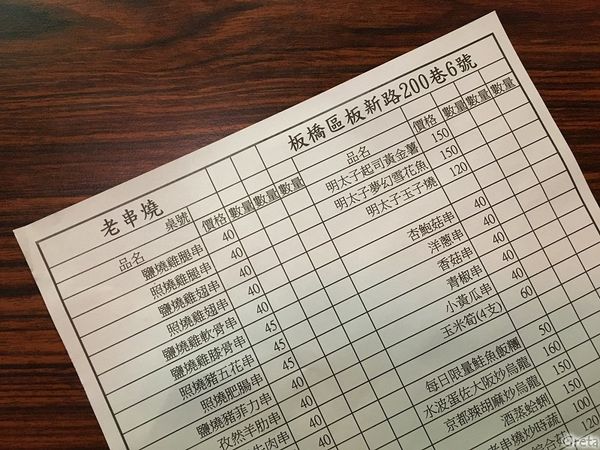 老串燒
桌號
板橋區板新路200巷6號
品名 價格 數量 數量 數量
鹽燒雞腿串 40
照燒雞腿串 40
鹽燒雞翅串 40
照燒雞翅串 40
鹽燒雞軟骨串 40
鹽燒雞膝骨串 45
照燒豬五花串 45
照燒肥腸串 45
鹽燒豬菲力串 40
孜然羊肋串 40
牛肉串
品名 價格 數量 數量 數量
明太子起司黃金薯 150
明太子夢幻雪花魚 150
明太子玉子燒 120
杏鮑菇串 40
洋蔥串 40
香菇串 40
青椒串 40
小黃瓜串 40
玉米筍(4支) 60
每日限量鮭魚飯糰 50
水波蛋佐大阪炒烏龍 160
京都辣胡麻炒烏龍 150
酒蒸蛤蜊 150
老串燒炒時蔬 100
綜合 120
Oreta